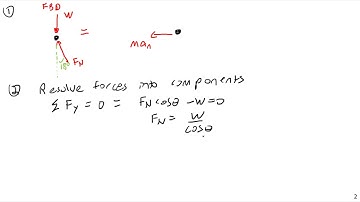 ① FBD
W
=
18°
F_N
ma_n
② Resolve forces into components
Σ F_y = 0 = F_N cosθ - W = 0
F_N = W / cosθ
2